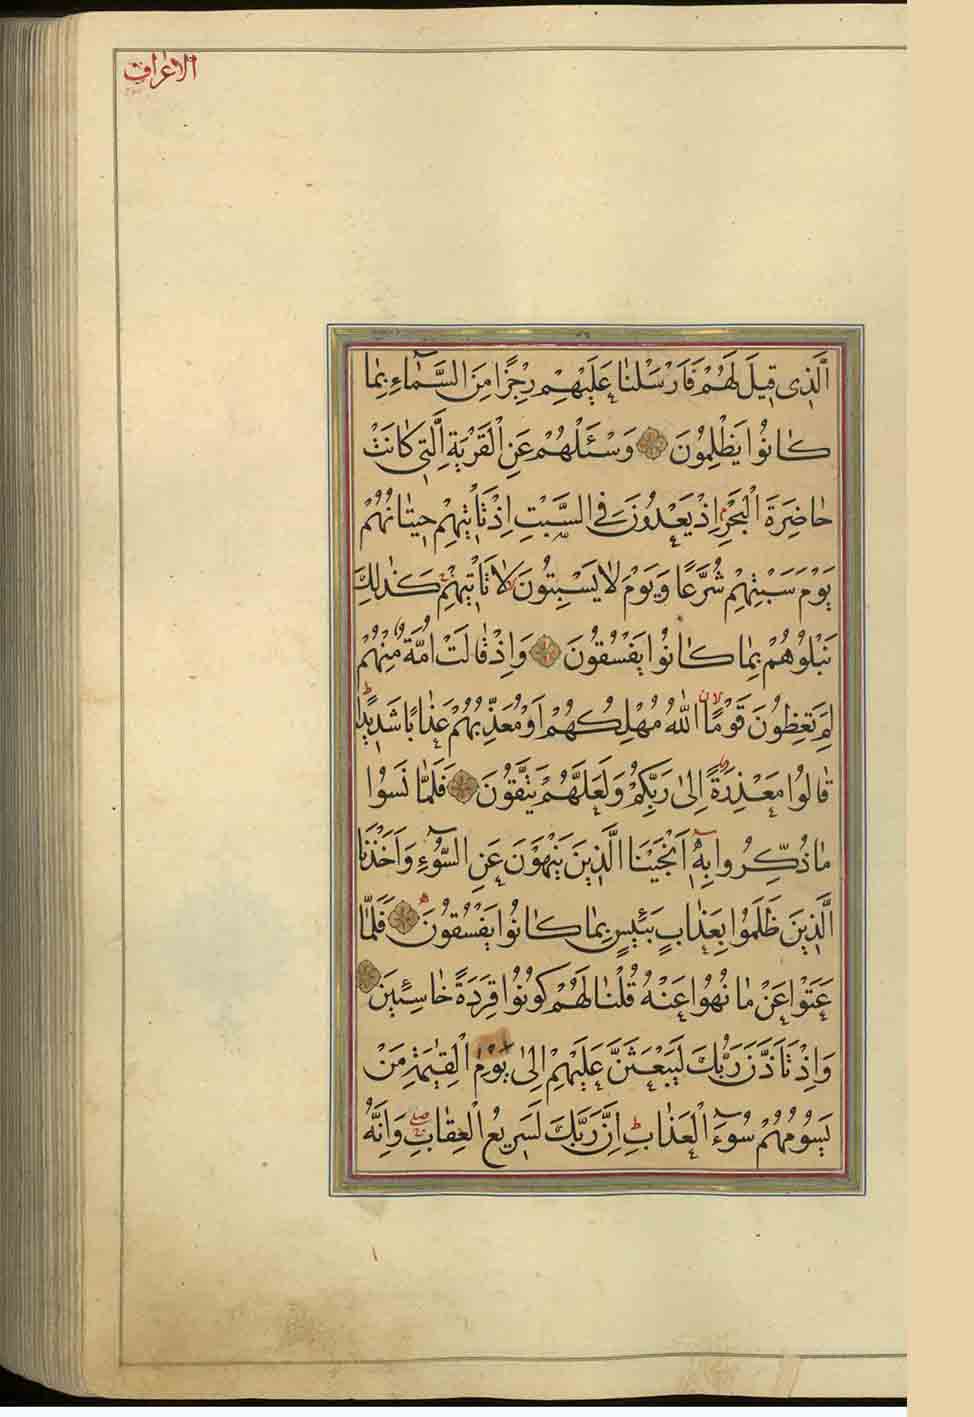 الاعراف
الَّذِى قِيلَ لَهُمْ فَاَرْسَلْنَا عَلَيْهِمْ رِجْزًا مِنَ السَّمَاءِ بِمَا
كَانُوا يَظْلِمُونَ وَسْئَلْهُمْ عَنِ الْقَرْيَةِ الَّتِى كَانَتْ
حَاضِرَةَ الْبَحْرِ اِذْ يَعْدُونَ فِى السَّبْتِ اِذْ تَاْتِيهِمْ حِيتَانُهُمْ
يَوْمَ سَبْتِهِمْ شُرَّعًا وَيَوْمَ لَا يَسْبِتُونَ لَا تَاْتِيهِمْ كَذٰلِكَ
نَبْلُوهُمْ بِمَا كَانُوا يَفْسُقُونَ وَاِذْ قَالَتْ اُمَّةٌ مِنْهُمْ
لِمَ تَعِظُونَ قَوْمًا اللّٰهُ مُهْلِكُهُمْ اَوْ مُعَذِّبُهُمْ عَذَابًا شَدِيدًا
قَالُوا مَعْذِرَةً اِلٰى رَبِّكُمْ وَلَعَلَّهُمْ يَتَّقُونَ فَلَمَّا نَسُوا
مَا ذُكِّرُوا بِهِ اَنْجَيْنَا الَّذِينَ يَنْهَوْنَ عَنِ السُّوءِ وَاَخَذْنَا
الَّذِينَ ظَلَمُوا بِعَذَابٍ بَئِيسٍ بِمَا كَانُوا يَفْسُقُونَ فَلَمَّا
عَتَوْا عَنْ مَا نُهُوا عَنْهُ قُلْنَا لَهُمْ كُونُوا قِرَدَةً خَاسِئِينَ
وَاِذْ تَاَذَّنَ رَبُّكَ لَيَبْعَثَنَّ عَلَيْهِمْ اِلٰى يَوْمِ الْقِيٰمَةِ مَنْ
يَسُومُهُمْ سُوءَ الْعَذَابِ اِنَّ رَبَّكَ لَسَرِيعُ الْعِقَابِ وَاِنَّهُ